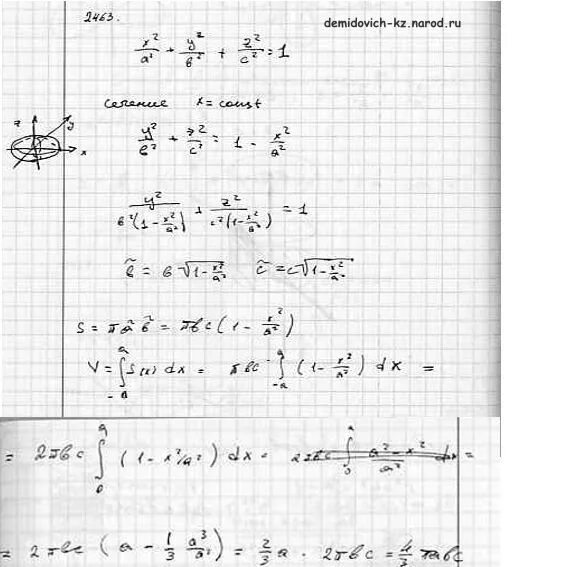 2463.
demidovich-kz.narod.ru
x²/a² + y²/в² + z²/c² = 1
сечение x = const
y²/в² + z²/c² = 1 - x²/a²
z y x
y²/(в²(1-x²/a²)) + z²/(c²(1-x²/a²)) = 1
b̃ = в√(1-x²/a²) c̃ = c√(1-x²/a²)
S = πãb̃ = πвc(1 - x²/a²)
V = ∫_{-a}^{a} S(x) dx = πвc ∫_{-a}^{a} (1 - x²/a²) dx =
= 2πвc ∫_0^a (1 - x²/a²) dx = 2πвc ∫_0^a (a² - x²)/a² dx =
= 2πвc (a - 1/3 a³/a²) = 2/3 a · 2πвc = 4/3 πaвc